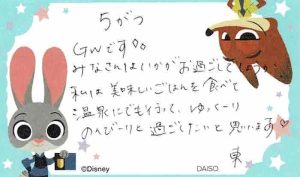 5がつ
GWです。
みなさんはいかがお過ごしでしょうか
私は美味しいごはんを食べて
温泉にでも行って、ゆっくーり
のんびーりと過ごしたいと思います♡
東
©Disney
DAISO